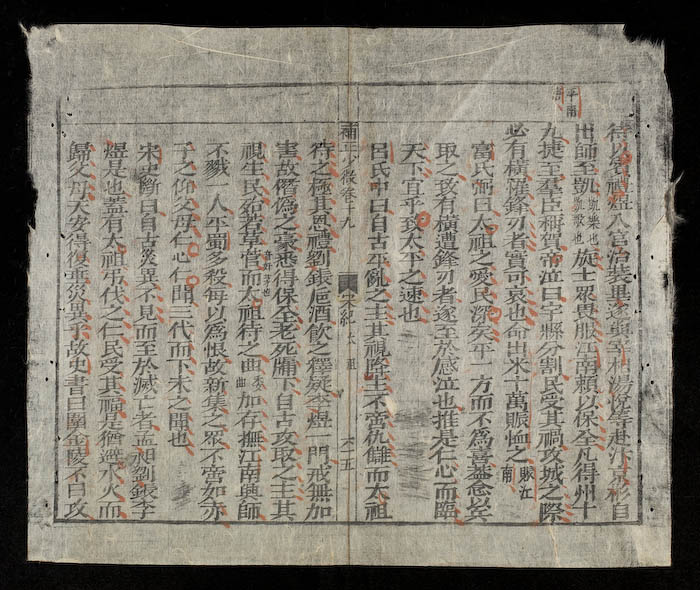 平南
待以賓禮煜入宮治裝畢遂與宰相湯悅等赴汴京彬自
出師至凱凱樂也凱歌也旋士眾畏服江南賴以保全凡得州十
九捷至羣臣稱賀帝泣曰宇縣分割民受其禍攻城之際
必有橫罹鋒刃者實可哀也命出米十萬賑恤之賑江南
富氏弼曰太祖之愛民深矣平一方而不為喜蓋念以兵
取之致有橫遭鋒刃者遂至於感泣也推是仁心而臨
天下宜乎致太平之速也
呂氏中曰自古平亂之主其視降王不啻仇讎而太祖
補正少微卷十九 宋紀太祖 六十五
待之極其恩禮劉鋹巵酒飲之釋疑李煜一門戒無加
害故僭偽之豪悉得保全老死牖下自古攻取之主其
視生民殆若草菅而太祖待之曲加存撫江南興師
不戮一人平蜀多殺每以為恨故新集之眾不啻如赤
子之仰父母仁心仁聞三代而下未之聞也
宋史斷曰自古災異不見而至於滅亡者孟昶劉鋹李
煜是也蓋有太祖弔代之仁民受其福是猶避水火而
歸父母天安得復垂災異乎故史書曰圍金陵不曰攻